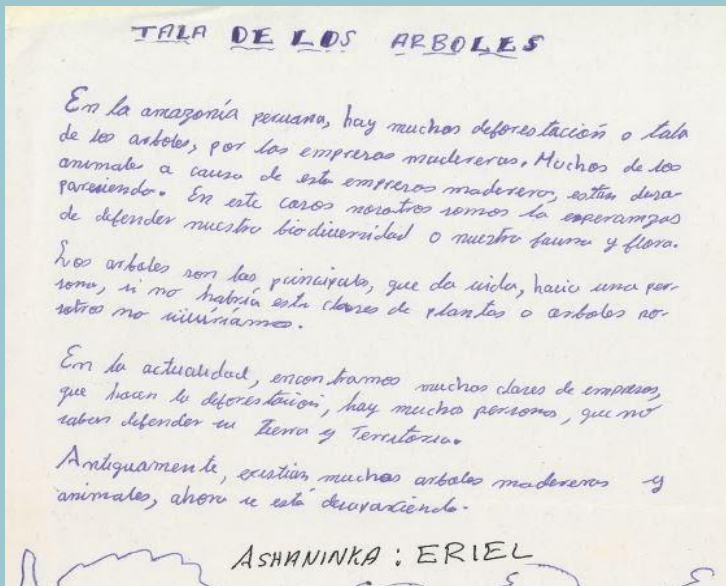 TALA DE LOS ARBOLES
En la amazonía peruana, hay muchos deforestación o tala
de los arboles, por las empresas madereras. Muchos de los
animales a causa de esta empresas maderera, estan desa-
pareciendo. En este casos nosotros somos la esperanzas
de defender nuestra biodiversidad o nuestra fauna y flora.
Los arboles son las principals, que da vida, hacia una per-
sona, si no habría esta clases de plantas o arboles no-
sotros no viviríamos.
En la actualidad, encontramos muchas clases de empresas,
que hacen la deforestacion, hay muchas personas, que no
saben defender su Tierra y Territorio.
Antiguamente, existian muchos arboles madereros y
animales, ahora se está desapareciendo.
ASHANINKA : ERIEL